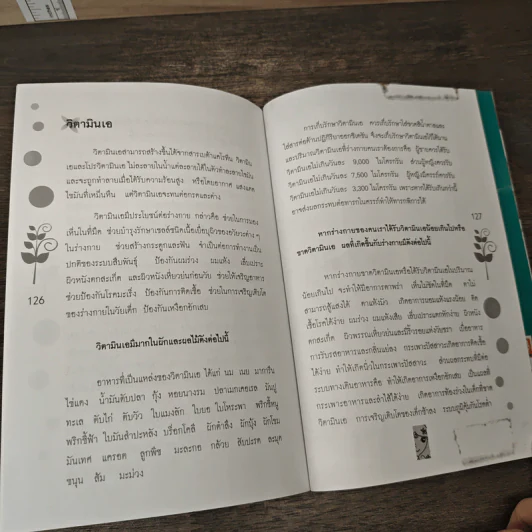 วิตามินเอ
วิตามินเอสามารถสร้างขึ้นได้จากสารเบต้าแคโรทีน วิตามิน
เอและโปรวิตามินเอ ไม่ละลายในน้ำแต่ละลายได้ในตัวทำละลายไขมัน
และจะถูกทำลายเมื่อได้รับความร้อนสูง หรือโดยอากาศ แสงแดด
ไขมันที่เหม็นหืน แต่วิตามินเอจะทนต่อกรดและด่าง
วิตามินเอมีประโยชน์ต่อร่างกาย กล่าวคือ ช่วยในการมอง
เห็นในที่มืด ช่วยบำรุงรักษาเซลล์ชนิดเนื้อเยื่อบุผิวของอวัยวะต่าง ๆ
ในร่างกาย ช่วยสร้างกระดูกและฟัน จำเป็นต่อการทำงานเป็น
ปกติของระบบสืบพันธุ์ ป้องกันผมร่วง ผมแห้ง เสียงแหบ
ผิวหนังตกสะเก็ด และผิวหนังเหี่ยวย่นก่อนวัย ช่วยให้เจริญอาหาร
ช่วยป้องกันโรคมะเร็ง ป้องกันการติดเชื้อ ช่วยในการเจริญเติบโต
ของร่างกายในวัยเด็ก ป้องกันเหงือกอักเสบ
126
วิตามินเอมีมากในผักและผลไม้ดังต่อไปนี้
อาหารที่เป็นแหล่งของวิตามินเอ ได้แก่ นม เนย มาการีน
ไข่แดง น้ำมันตับปลา กุ้ง หอยนางรม ปลาแมกเคอเรล วัณปู
ทะเล ตับไก่ ตับวัว ใบแมงลัก ใบยอ ใบโหระพา พริกขี้หนู
พริกชี้ฟ้า ใบมันสำปะหลัง บร็อกโคลี ผักตำลึง ผักบุ้ง ผักโขม
มันเทศ แครอต ลูกพีช มะละกอ กล้วย สับปะรด ละมุด
ขนุน ส้ม มะม่วง
การเก็บรักษาวิตามินเอ ควรเก็บรักษาใส่ขวดสีน้ำตาลและ
ใส่สารต่อต้านปฏิกิริยาออกซิเดชัน จึงจะเก็บรักษาวิตามินไว้ได้นาน
และปริมาณวิตามินเอที่ร่างกายคนเราต้องการคือ ผู้ชายควรได้รับ
วิตามินเอไม่เกินวันละ 9,000 ไมโครกรัม ส่วนผู้หญิงควรรับ
วิตามินเอไม่เกินวันละ 7,500 ไมโครกรัม ผู้หญิงมีครรภ์ควรรับ
วิตามินเอไม่เกินวันละ 3,300 ไมโครกรัม เพราะหากได้รับเกินกว่านี้
อาจส่งผลกระทบต่อทารกในครรภ์ทำให้ทารกพิการได้
127
หากร่างกายของคนเราได้รับวิตามินเอน้อยเกินไปหรือ
ขาดวิตามินเอ ผลที่เกิดขึ้นกับร่างกายมีดังต่อไปนี้
หากร่างกายขาดวิตามินเอหรือได้รับวิตามินเอในปริมาณ
น้อยเกินไป จะทำให้มีอาการตาพร่า เห็นไม่ชัดในที่มืด ตาไม่
สามารถสู้แสงได้ ตาแห้งผัง เกิดอาการผมแห้งแข็งน้อย ติด
เชื้อโรคได้ง่าย ผมร่วง ผมแห้งเสีย เล็บเปราะแตกหักง่าย ผิวหนัง
ตกสะเก็ด ผิวพรรณเหี่ยวย่นและมีริ้วรอยแห่งวัยชรา เบื่ออาหาร
การรับรสอาหารและกลิ่นแย่ลง กระเพาะปัสสาวะเกิดอาการติดเชื้อ
ได้ง่าย ทำให้เกิดนิ่วในกระเพาะปัสสาวะ ส่วนผลกระทบที่มีต่อ
ระบบทางเดินอาหารคือ ทำให้เกิดอาการเหงือกอักเสบ เป็นแผลที่
กระเพาะอาหารและลำไส้ได้ง่าย เกิดอาการท้องร่วงในเด็กที่ขาด
วิตามินเอ การเจริญเติบโตของเด็กช้าลง ระบบภูมิคุ้มกันโรคต่ำ